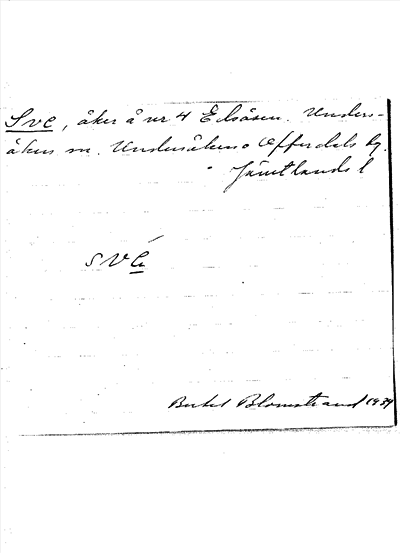 Sve, åker å nr 4 Edsåsen. Unders-
åkers sn. Undersåkers o Offerdals tg.
Jämtlands l
SVE
Bertel Blomstrand 1939